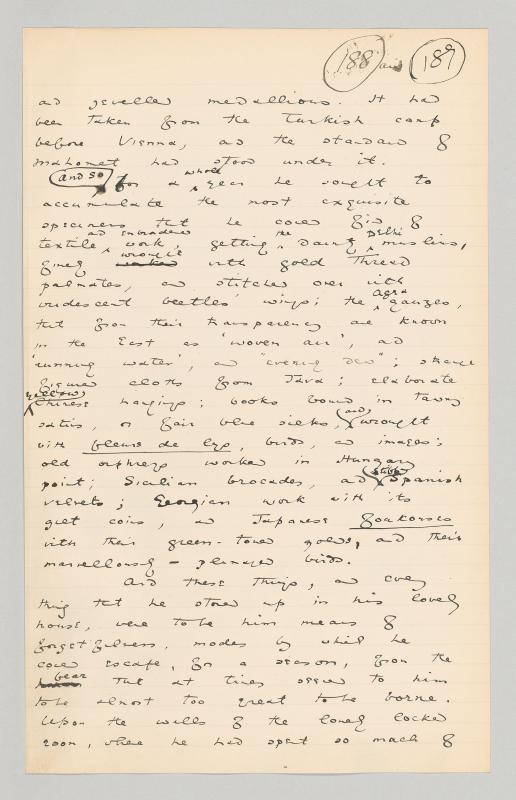 188 and 189
and jewelled medallions. It had
been taken from the Turkish camp
before Vienna, and the standard of
Mahomet had stood under it.
And so for a whole year he sought to
accumulate the most exquisite
specimens that he could find of
textile and embroidered work, getting the dainty Delhi muslins,
finely wrought with gold thread
palmates, and stitched over with
iridescent beetles' wings; the Agra gauzes,
that from their transparency are known
in the East as 'woven air', and
'running water', and "evening dew"; strange
figured cloths from Java; elaborate
yellow Chinese hangings; books bound in tawny
satins, or fair blue silks, and wrought
with fleurs de lys, birds, and images;
old orphreys worked in Hungary
point; Sicilian brocades, and stiff Spanish
velvets; Georgian work with its
gilt coins, and Japanese Foukousas
with their green-toned golds, and their
marvellously-plumaged birds.
And these things, and every
thing that he stored up in his lovely
house, were to be to him means of
forgetfulness, modes by which he
could escape, for a season, from the
bear that at times seemed to him
to be almost too great to be borne.
Upon the walls of the lonely locked
room, where he had spent so much of